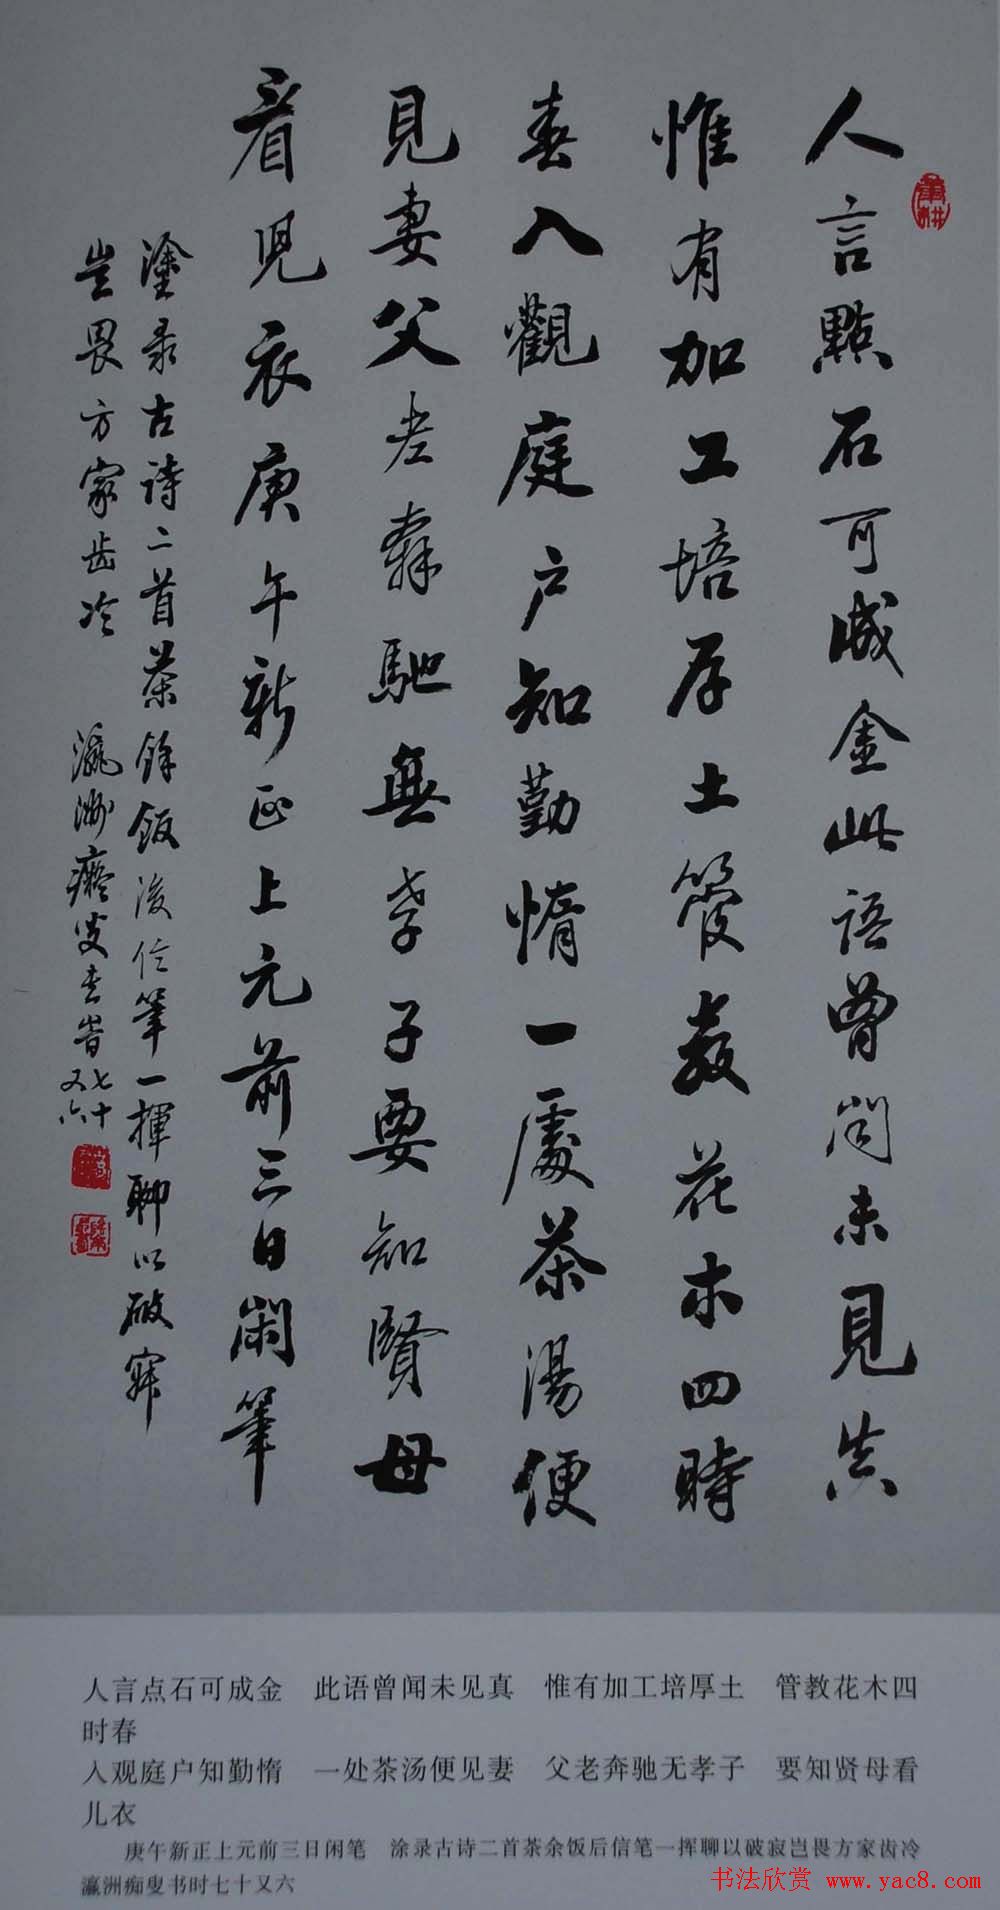 人言點石可成金此語曾闻未見真
惟有加工培厚土管教花木四時
春入觀庭户知勤惰一處茶湯便
見妻父老奔馳無孝子要知賢母
看兒衣庚午新正上元前三日闲筆
塗录古诗二首茶餘飯後信筆一揮聊以破寂
岂畏方家齿冷 瀛洲癡叟書时七十又六
人言点石可成金 此语曾闻未见真 惟有加工培厚土 管教花木四
时春
入观庭户知勤惰 一处茶汤便见妻 父老奔驰无孝子 要知贤母看
儿衣
庚午新正上元前三日闲笔 涂录古诗二首茶余饭后信笔一挥聊以破寂岂畏方家齿冷
瀛洲痴叟书时七十又六
书法欣赏 www.yac8.com